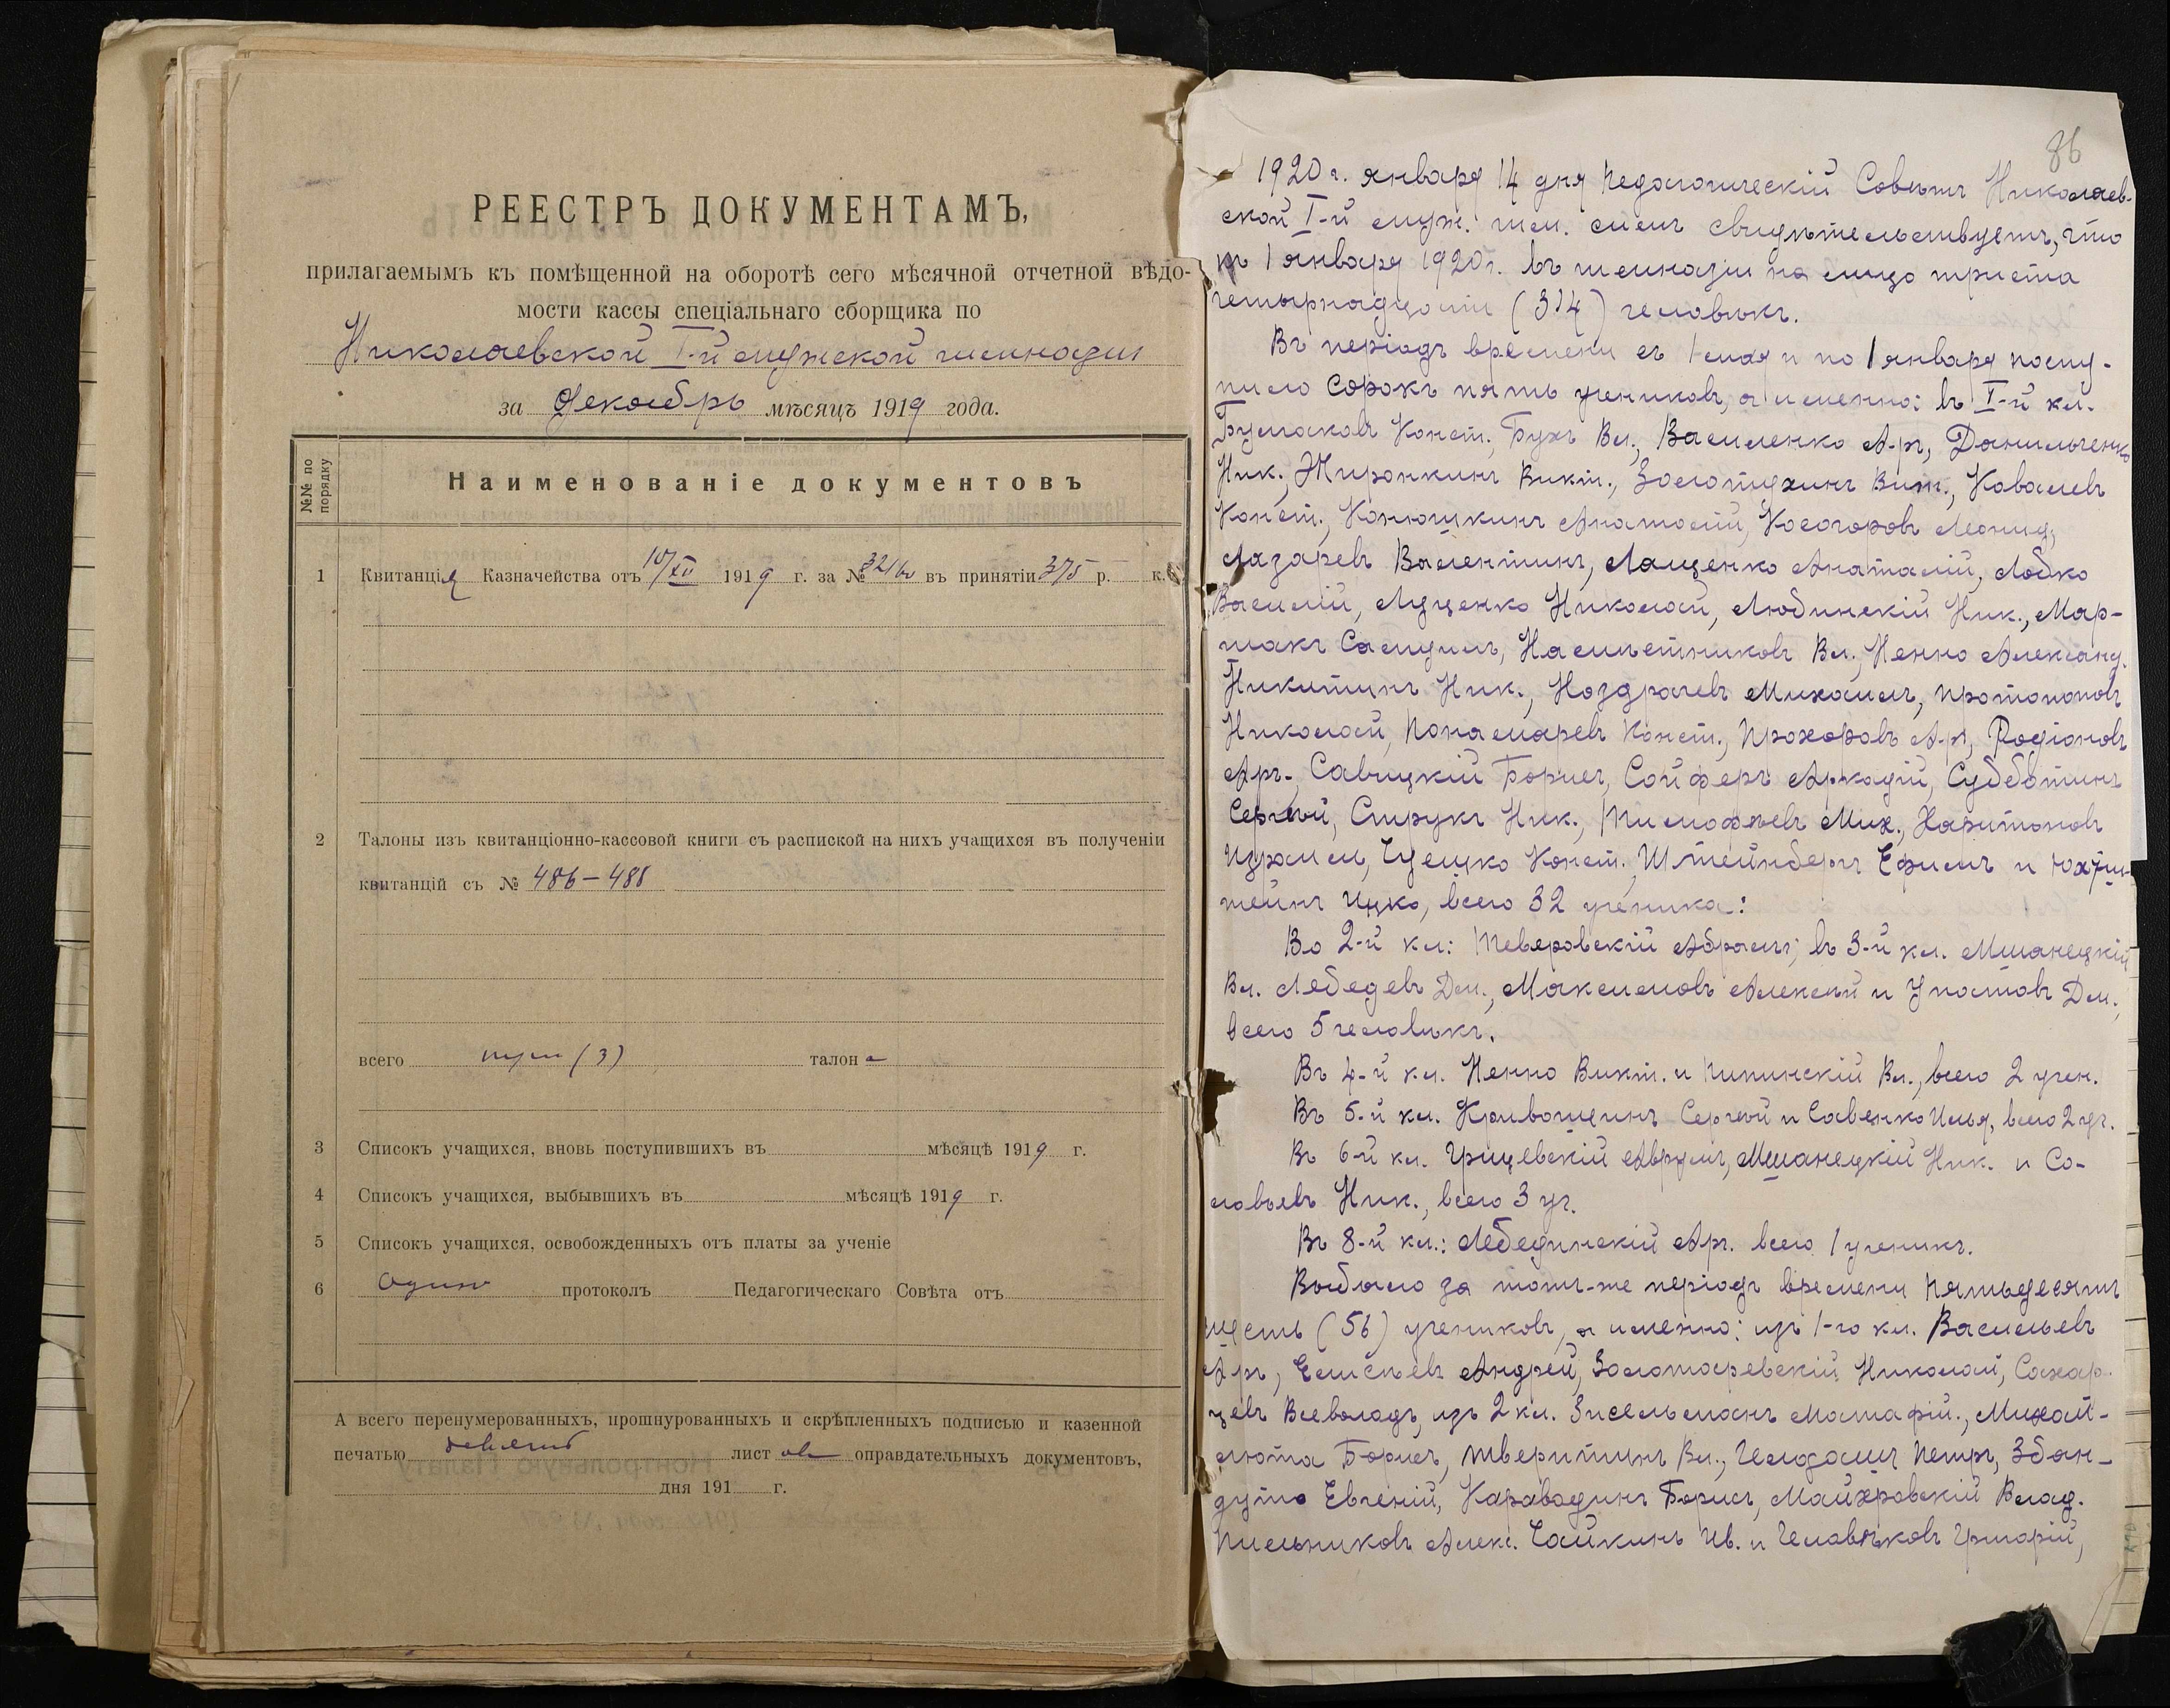 РЕЕСТРЪ ДОКУМЕНТАМЪ,
прилагаемымъ къ помѣщенной на оборотѣ сего мѣсячной отчетной вѣдо-
мости кассы спеціальнаго сборщика по
Николаевской I-й мужской гимназіи
за Декабрь мѣсяцъ 1919 года.
№№ по порядку
Наименованіе документовъ
1 Квитанція Казначейства отъ 10/XII 1919 г. за № въ принятіи 375 р. к.
2 Талоны изъ квитанціонно-кассовой книги съ распиской на нихъ учащихся въ полученіи
квитанцій съ № 486-488
всего три (3) талона
3 Списокъ учащихся, вновь поступившихъ въ мѣсяцѣ 1919 г.
4 Списокъ учащихся, выбывшихъ въ мѣсяцѣ 1919 г.
5 Списокъ учащихся, освобожденныхъ отъ платы за ученіе
6 Одинъ протоколъ Педагогическаго Совѣта отъ
А всего перенумерованныхъ, прошнурованныхъ и скрѣпленныхъ подписью и казенной
печатью девять листовъ оправдательныхъ документовъ,
дня 191 г.
86
1920 г. января 14 дня Педагогическій Совѣтъ Николаев-
ской I-й муж. гим. симъ свидѣтельствуетъ, что
къ 1 января 1920 г. въ гимназіи на лицо триста
четырнадцать (314) человѣкъ.
Въ періодъ времени съ 1 мая и по 1 января посту-
пило сорокъ пять учениковъ, а именно: въ I-й кл.
Булаковъ Конст., Бухъ Вл., Василенко Ар., Данильченко
Ник., Жиронкинъ Викт., Золотухинъ Вит., Ковалевъ
Конст., Конюшкинъ Анатолій, Косогоровъ Леонид,
Лазаревъ Валентинъ, Лащенко Анатолій, Лобко
Василій, Луценко Николай, Любинскій Ник., Мар-
шакъ Самуилъ, Наслѣтниковъ Вл., Ненно Александ.
Никитинъ Ник., Ноздрачевъ Михаилъ, Протопоповъ
Николай, Понамаревъ Конст., Прохоровъ Ар., Родіоновъ
Ар., Савицкій Борисъ, Сойферъ Аркадій, Субботинъ
Сергѣй, Струкъ Ник., Тимофѣевъ Мих., Харитоновъ
Израил, Конст., Штейнбергъ Ефимъ и
Ицко, всего 32 ученика:
Во 2-й кл: Теверовскій Абрамъ; въ 3-й кл. Мшанецкій
Вл. Лебедевъ Дм., Максимовъ Алексѣй и Упатовъ Дм.,
всего 5 человѣкъ.
Въ 4-й кл. Ненно Викт. и Липинскій Вл., всего 2 учен.
Въ 5-й кл. Кривошинъ Сергѣй и Савенко Илья, всего 2 уч.
Въ 6-й кл. Грищевскій Аврумъ, Мшанецкій Ник. и Со-
ловьевъ Ник., всего 3 уч.
Въ 8-й кл.: Лебединскій Ар. всего 1 ученикъ.
Выбыло за тотъ-же періодъ времени пятьдесятъ
шесть (56) учениковъ, а именно: изъ 1-го кл. Васильевъ
Ар., Елисѣевъ Андрей, Золотаревскій Николай,
Всеволодъ, изъ 2 кл. Зисельманъ Михай-
люта Борисъ, Тверитинъ Вл., Петръ, Збан-
дуто Евгеній, Караводинъ Борисъ, Влад.
Пильниковъ Алекс. Чайкинъ Ив. и Челавѣковъ Григорій,